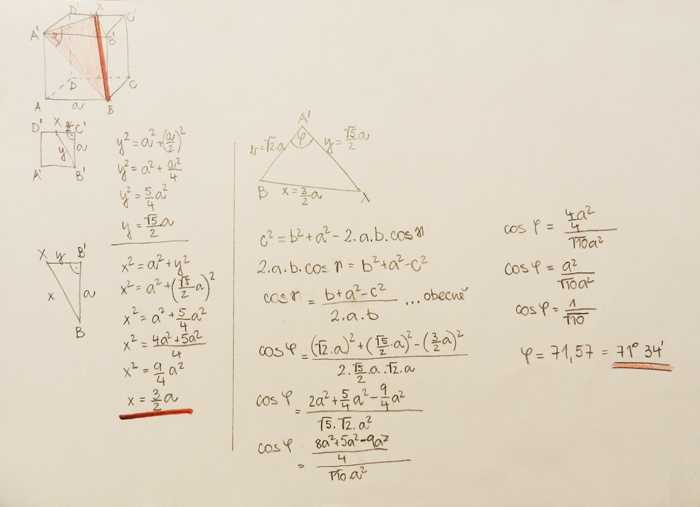 D' X C'
A' φ B'
D C
A a B
D' X a/2 C'
y a
A' B'
y² = a² + (a/2)²
y² = a² + a²/4
y² = 5/4 a²
y = √5/2 a
X y B'
x a
B
x² = a² + y²
x² = a² + (√5/2 a)²
x² = a² + 5/4 a²
x² = 4a² + 5a² / 4
x² = 9/4 a²
x = 3/2 a
A'
v = √2 a φ y = √5/2 a
B x = 3/2 a X
c² = b² + a² - 2.a.b.cos γ
2.a.b.cos γ = b² + a² - c²
cos γ = b + a² - c² / 2.a.b ... obecně
cos φ = (√2.a)² + (√5/2.a)² - (3/2 a)² / 2.√5/2 a.√2.a
cos φ = 2a² + 5/4 a² - 9/4 a² / √5.√2.a²
cos φ = 8a² + 5a² - 9a² / 4 / √10 a²
cos φ = 4a²/4 / √10 a²
cos φ = a² / √10 a²
cos φ = 1/√10
φ = 71,57 = 71° 34'